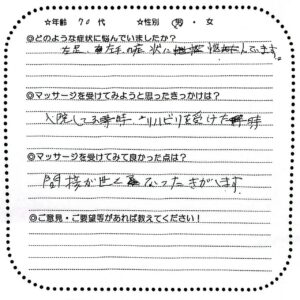 ☆年齢 70代 ☆性別 男・女
◎どのような症状に悩んでいましたか?
左足、左手の症状に悩んでいます。
◎マッサージを受けてみようと思ったきっかけは?
入院してる時 リハビリを受けた時
◎マッサージを受けてみて良かった点は?
関接が世くなったきがします
◎ご意見・ご要望等があれば教えてください!